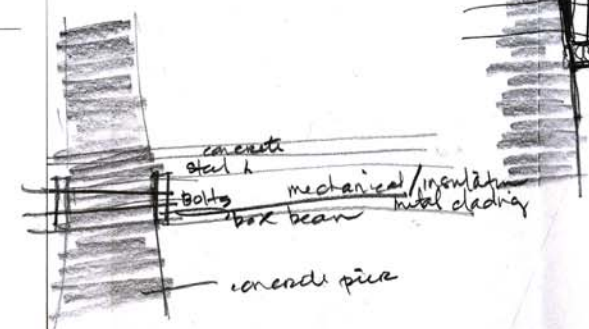 concrete
steel
Bolts
mechanical/insulation
metal cladding
box beam
concrete pier